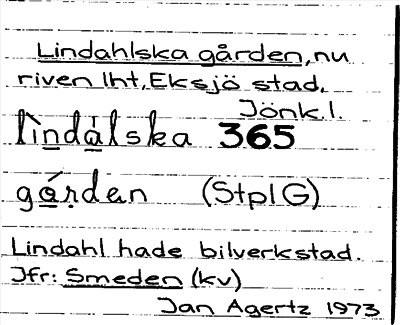 Lindahlska gården, nu
riven lht, Eksjö stad,
Jönk.l.
lìndálska 365
gá̀rden (Stpl G)
Lindahl hade bilverkstad.
Jfr: Smeden (kv)
Jan Agertz 1973